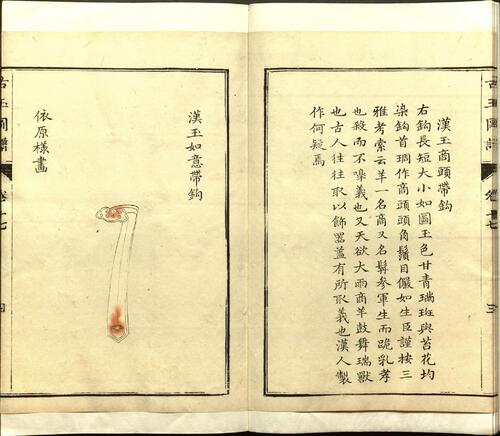 漢玉商頭帶鉤
右鉤長短大小如圖玉色甘青瑞斑與苔花均
染鉤首琱作商頭頭角鬚目儼如生臣謹按三
雅考索云羊一名商又名髯參軍生而跪乳孝
也殺而不嗥義也又天欲大雨商羊鼓舞瑞獸
也古人往往取以飾器蓋有所取義也漢人製
作何疑焉
古玉圖譜
三
漢玉如意帶鉤
依原樣畫
古玉圖譜
四